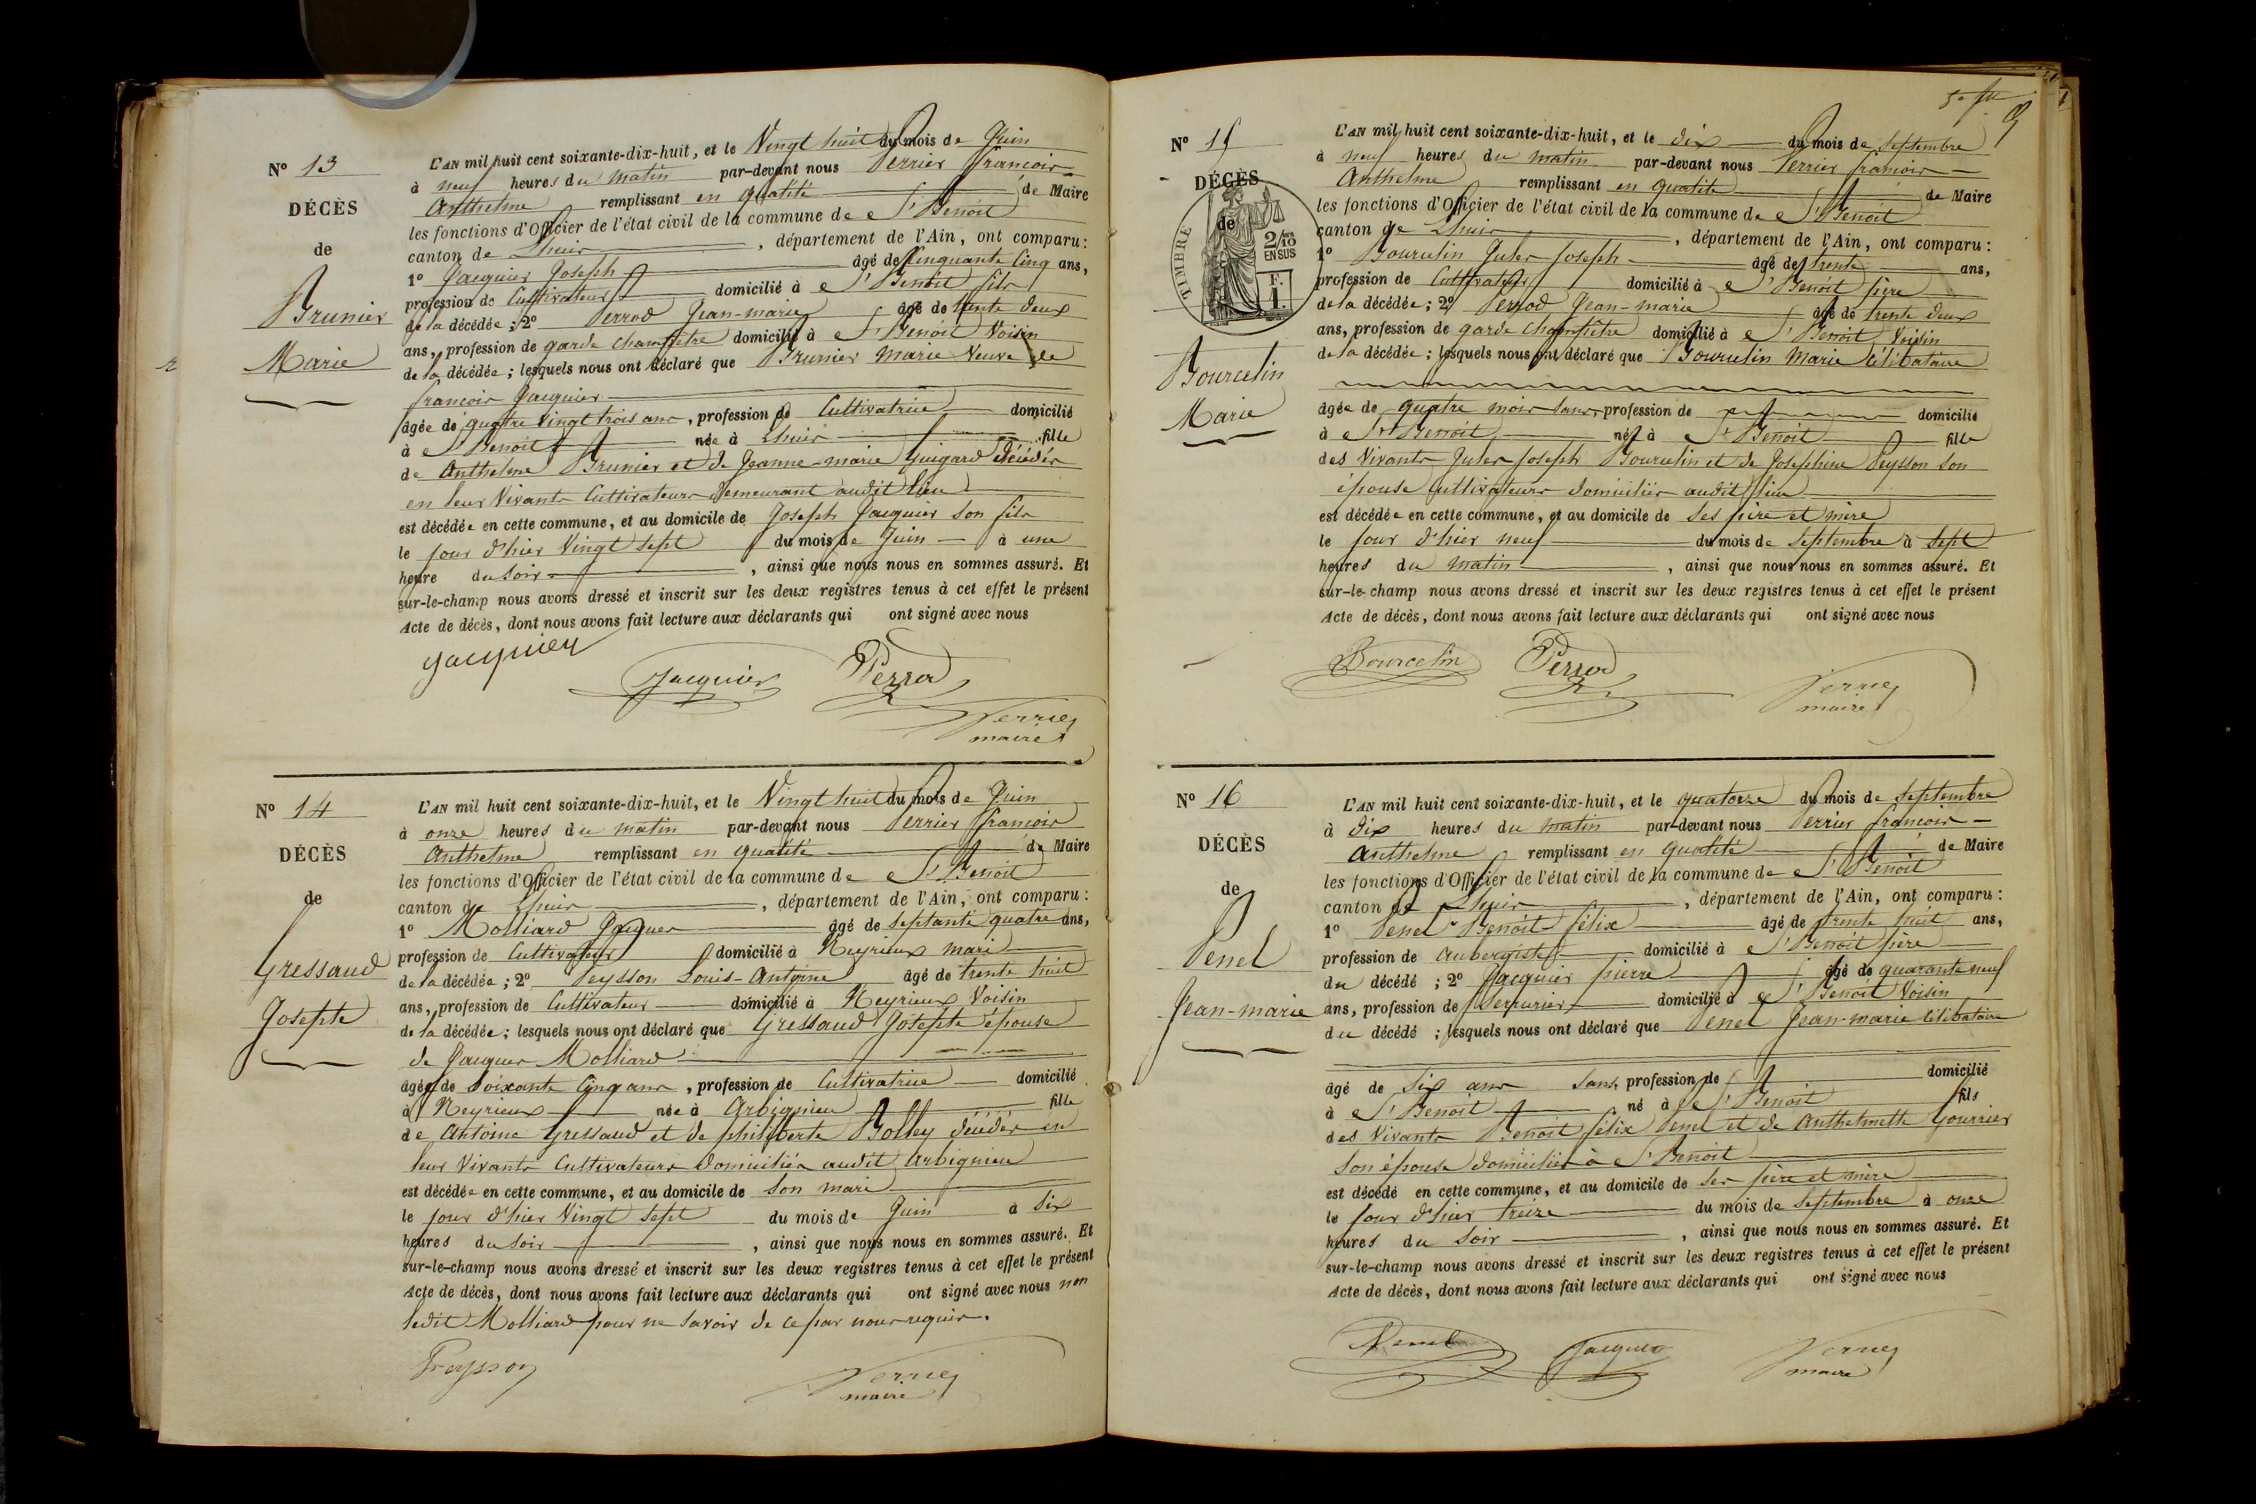 No 13
DÉCÈS
de
Brunier
Marie
L'AN mil huit cent soixante-dix-huit, et le Vingt huit du mois de Juin
à neuf heures du matin par-devant nous Perrier francois
Anthelme remplissant en qualité de Maire
les fonctions d'Officier de l'état civil de la commune de St Benoit
canton de Lhuis, département de l'Ain, ont comparu:
1o Jacquier Joseph âgé de Cinquante Cinq ans,
profession de Cultivateur domicilié à St Benoit fils
de la décédée; 2o Perrod Jean-marie âgé de trente deux
ans, profession de garde champêtre domicilié à St Benoit Voisin
de la décédée; lesquels nous ont déclaré que Brunier Marie Veuve de
francois Jacquier
âgée de quatre Vingt trois ans, profession de Cultivatrice domicilié
à St Benoit née à Lhuis fille
de Anthelme Brunier et de Jeanne-marie Guigard décédés
en leur Vivants Cultivateurs demeurant audit lieu
est décédée en cette commune, et au domicile de Joseph Jacquier son fils
le jour d'hier Vingt sept du mois de Juin à une
heure du soir, ainsi que nous nous en sommes assuré. Et
sur-le-champ nous avons dressé et inscrit sur les deux registres tenus à cet effet le présent
Acte de décès, dont nous avons fait lecture aux déclarants qui ont signé avec nous
Jacquier
Jacquier Perrod
Perrier
maire
No 14
DÉCÈS
de
Gressaud
Josephte
L'AN mil huit cent soixante-dix-huit, et le Vingt huit du mois de Juin
à onze heures du matin par-devant nous Perrier francois
Anthelme remplissant en qualité de Maire
les fonctions d'Officier de l'état civil de la commune de St Benoit
canton de Lhuis, département de l'Ain, ont comparu:
1o Molliard Jacques âgé de septante quatre ans,
profession de Cultivateur domicilié à Neyrieux mari
de la décédée; 2o Peysson Louis-Antoine âgé de trente huit
ans, profession de Cultivateur domicilié à Neyrieux Voisin
de la décédée; lesquels nous ont déclaré que Gressaud Josephte épouse
de Jacques Molliard
âgée de Soixante Cinq ans, profession de Cultivatrice domicilié
à Neyrieux née à Arbignieu fille
de Antoine Gressaud et de philiberte Bolley décédés en
leur Vivants Cultivateurs domiciliés audit Arbignieu
est décédée en cette commune, et au domicile de son mari
le jour d'hier Vingt sept du mois de Juin à Six
heures du soir, ainsi que nous nous en sommes assuré. Et
sur-le-champ nous avons dressé et inscrit sur les deux registres tenus à cet effet le présent
Acte de décès, dont nous avons fait lecture aux déclarants qui ont signé avec nous non
ledit Molliard pour ne savoir de ce par nous requis.
Peysson Perrier
maire
No 15
DÉCÈS
de
TIMBRE
2/10
EN SUS
F.
1.
Bourcelin
Marie
L'AN mil huit cent soixante-dix-huit, et le dix du mois de Septembre
à neuf heures du matin par-devant nous Perrier francois
Anthelme remplissant en qualité de Maire
les fonctions d'Officier de l'état civil de la commune de St Benoit
canton de Lhuis, département de l'Ain, ont comparu:
1o Bourcelin Jules Joseph âgé de trente ans,
profession de Cultivateur domicilié à St Benoit père
de la décédée; 2o Perrod Jean-marie âgé de trente deux
ans, profession de garde champêtre domicilié à St Benoit Voisin
de la décédée; lesquels nous ont déclaré que Bourcelin Marie Célibataire
âgée de quatre mois sans profession de domicilié
à St Benoit née à St Benoit fille
des Vivants Jules Joseph Bourcelin et de Josephine Peysson son
épouse Cultivateurs domiciliés audit lieu
est décédée en cette commune, et au domicile de ses père et mère
le jour d'hier neuf du mois de Septembre à sept
heures du matin, ainsi que nous nous en sommes assuré. Et
sur-le-champ nous avons dressé et inscrit sur les deux registres tenus à cet effet le présent
Acte de décès, dont nous avons fait lecture aux déclarants qui ont signé avec nous
Bourcelin Perrod Perrier
maire
No 16
DÉCÈS
de
Penel
Jean-marie
L'AN mil huit cent soixante-dix-huit, et le quatorze du mois de Septembre
à dix heures du matin par-devant nous Perrier francois
Anthelme remplissant en qualité de Maire
les fonctions d'Officier de l'état civil de la commune de St Benoit
canton de Lhuis, département de l'Ain, ont comparu:
1o Penel Benoit félix âgé de trente huit ans,
profession de Aubergiste domicilié à St Benoit père
du décédé; 2o Jacquier pierre âgé de quarante neuf
ans, profession de Serrurier domicilié à St Benoit Voisin
du décédé; lesquels nous ont déclaré que Penel Jean-marie Célibataire
âgé de Six ans sans profession de domicilié
à St Benoit né à St Benoit fils
des Vivants Benoit félix Penel et de Anthelmette Gourrier
son épouse domiciliés à St Benoit
est décédé en cette commune, et au domicile de ses père et mère
le jour d'hier treize du mois de Septembre à onze
heures du soir, ainsi que nous nous en sommes assuré. Et
sur-le-champ nous avons dressé et inscrit sur les deux registres tenus à cet effet le présent
Acte de décès, dont nous avons fait lecture aux déclarants qui ont signé avec nous
Penel Jacquier Perrier
maire